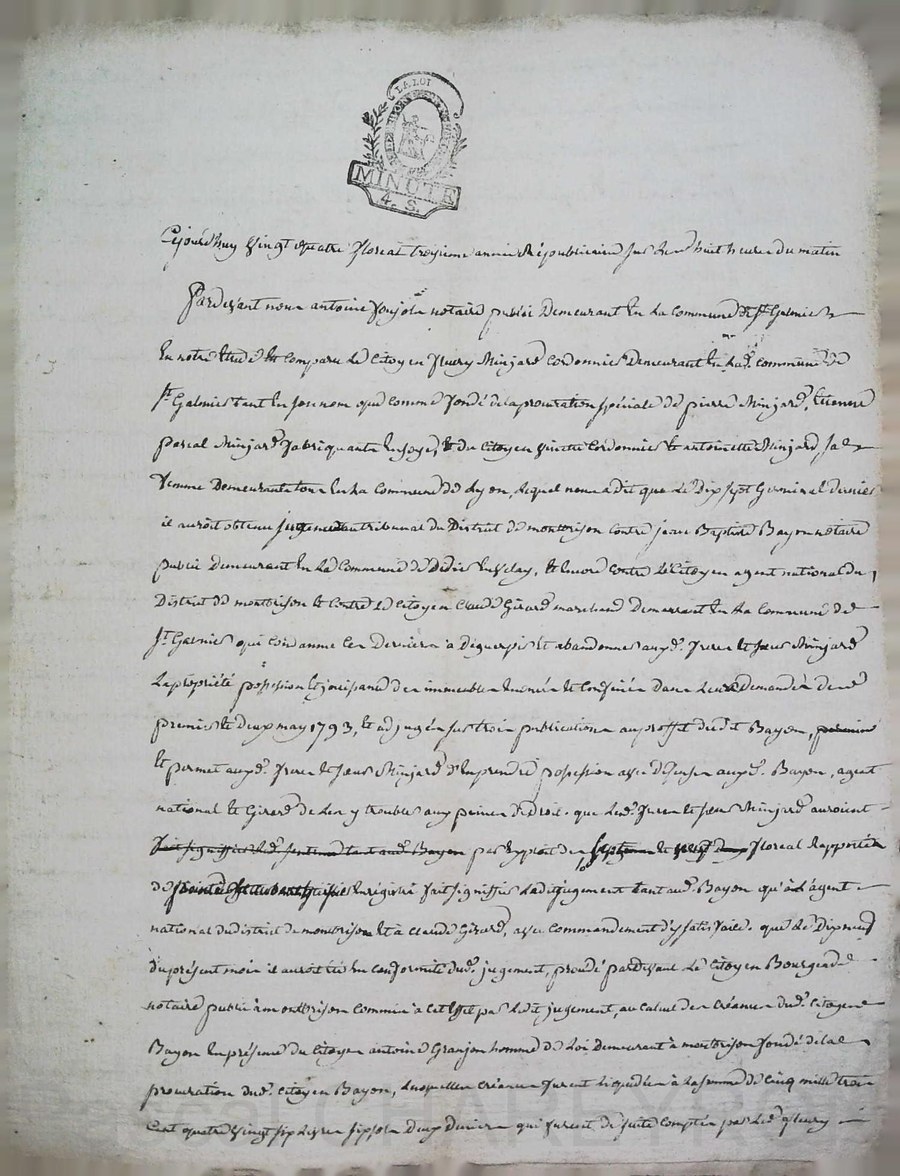 LA LOI
MINUTE
4. S.
Cejourd'huy vingt quatre floreal troisieme année Républicaine sur les huit heures du matin
Pardevant nous antoine notaire public demeurant en la commune de St Galmier
en notre étude est comparu le citoyen fleury Minjard cordonnier demeurant en lad. commune de
St Galmier tant en son nom que comme fondé de la procuration spéciale de pierre Minjard, étienne
pascal Minjard fabriquants en soye, & du citoyen cordonnier & antoinette Minjard, sa
femme demeurants tous en la commune de Lyon, lequel nous a dit que le dix sept Germinal dernier
il auroit obtenu jugement au tribunal du District de montbrison contre jean Baptiste Bayon notaire
public demeurant en la commune de Didier en Velay, & encore contre le citoyen agent national du
District de montbrison & contre le citoyen Claude Girard marchand demeurant en la commune de
St Galmier qui condamne ces derniers à déguerpir et abandonner auxd. freres et sœur Minjard
la propriété possession et jouissance des immeubles enoncés & confinés dans leurs demandes de
premier & deux may 1793, & adjugés sur trois publications au proffit dudit Bayon,
et permet auxd. freres et sœur Minjard d'en prendre possession avec défenses auxd. Bayon, agent
national & Girard de les y troubler aux peines de droit. que lesd. freres et sœur Minjard auroient
fait signiffier lad. sentence tant aud. Bayon par exploit des floreal Rapportés
de enregistré fait signiffier ledit jugement tant aud. Bayon qu'à l'agent
national du district de montbrison & à claude Girard, avec commandement d'y satisfaire. que le dixneuf
du présent mois il auroit été en conformité dud. jugement, procédé pardevant le citoyen Bourgeade
notaire public à montbrison commis à cet effet par ledit jugement, au calcul des créances dud. citoyen
Bayon en présence du citoyen antoine Granjon homme de Loi demeurant à montbrison fondé de la
procuration dud. citoyen Bayon, lesquelles créances furent liquidées à la somme de cinq mille trois
cent quatre vingt six livres six sols deux deniers qui furent de suite comptés par led. fleury